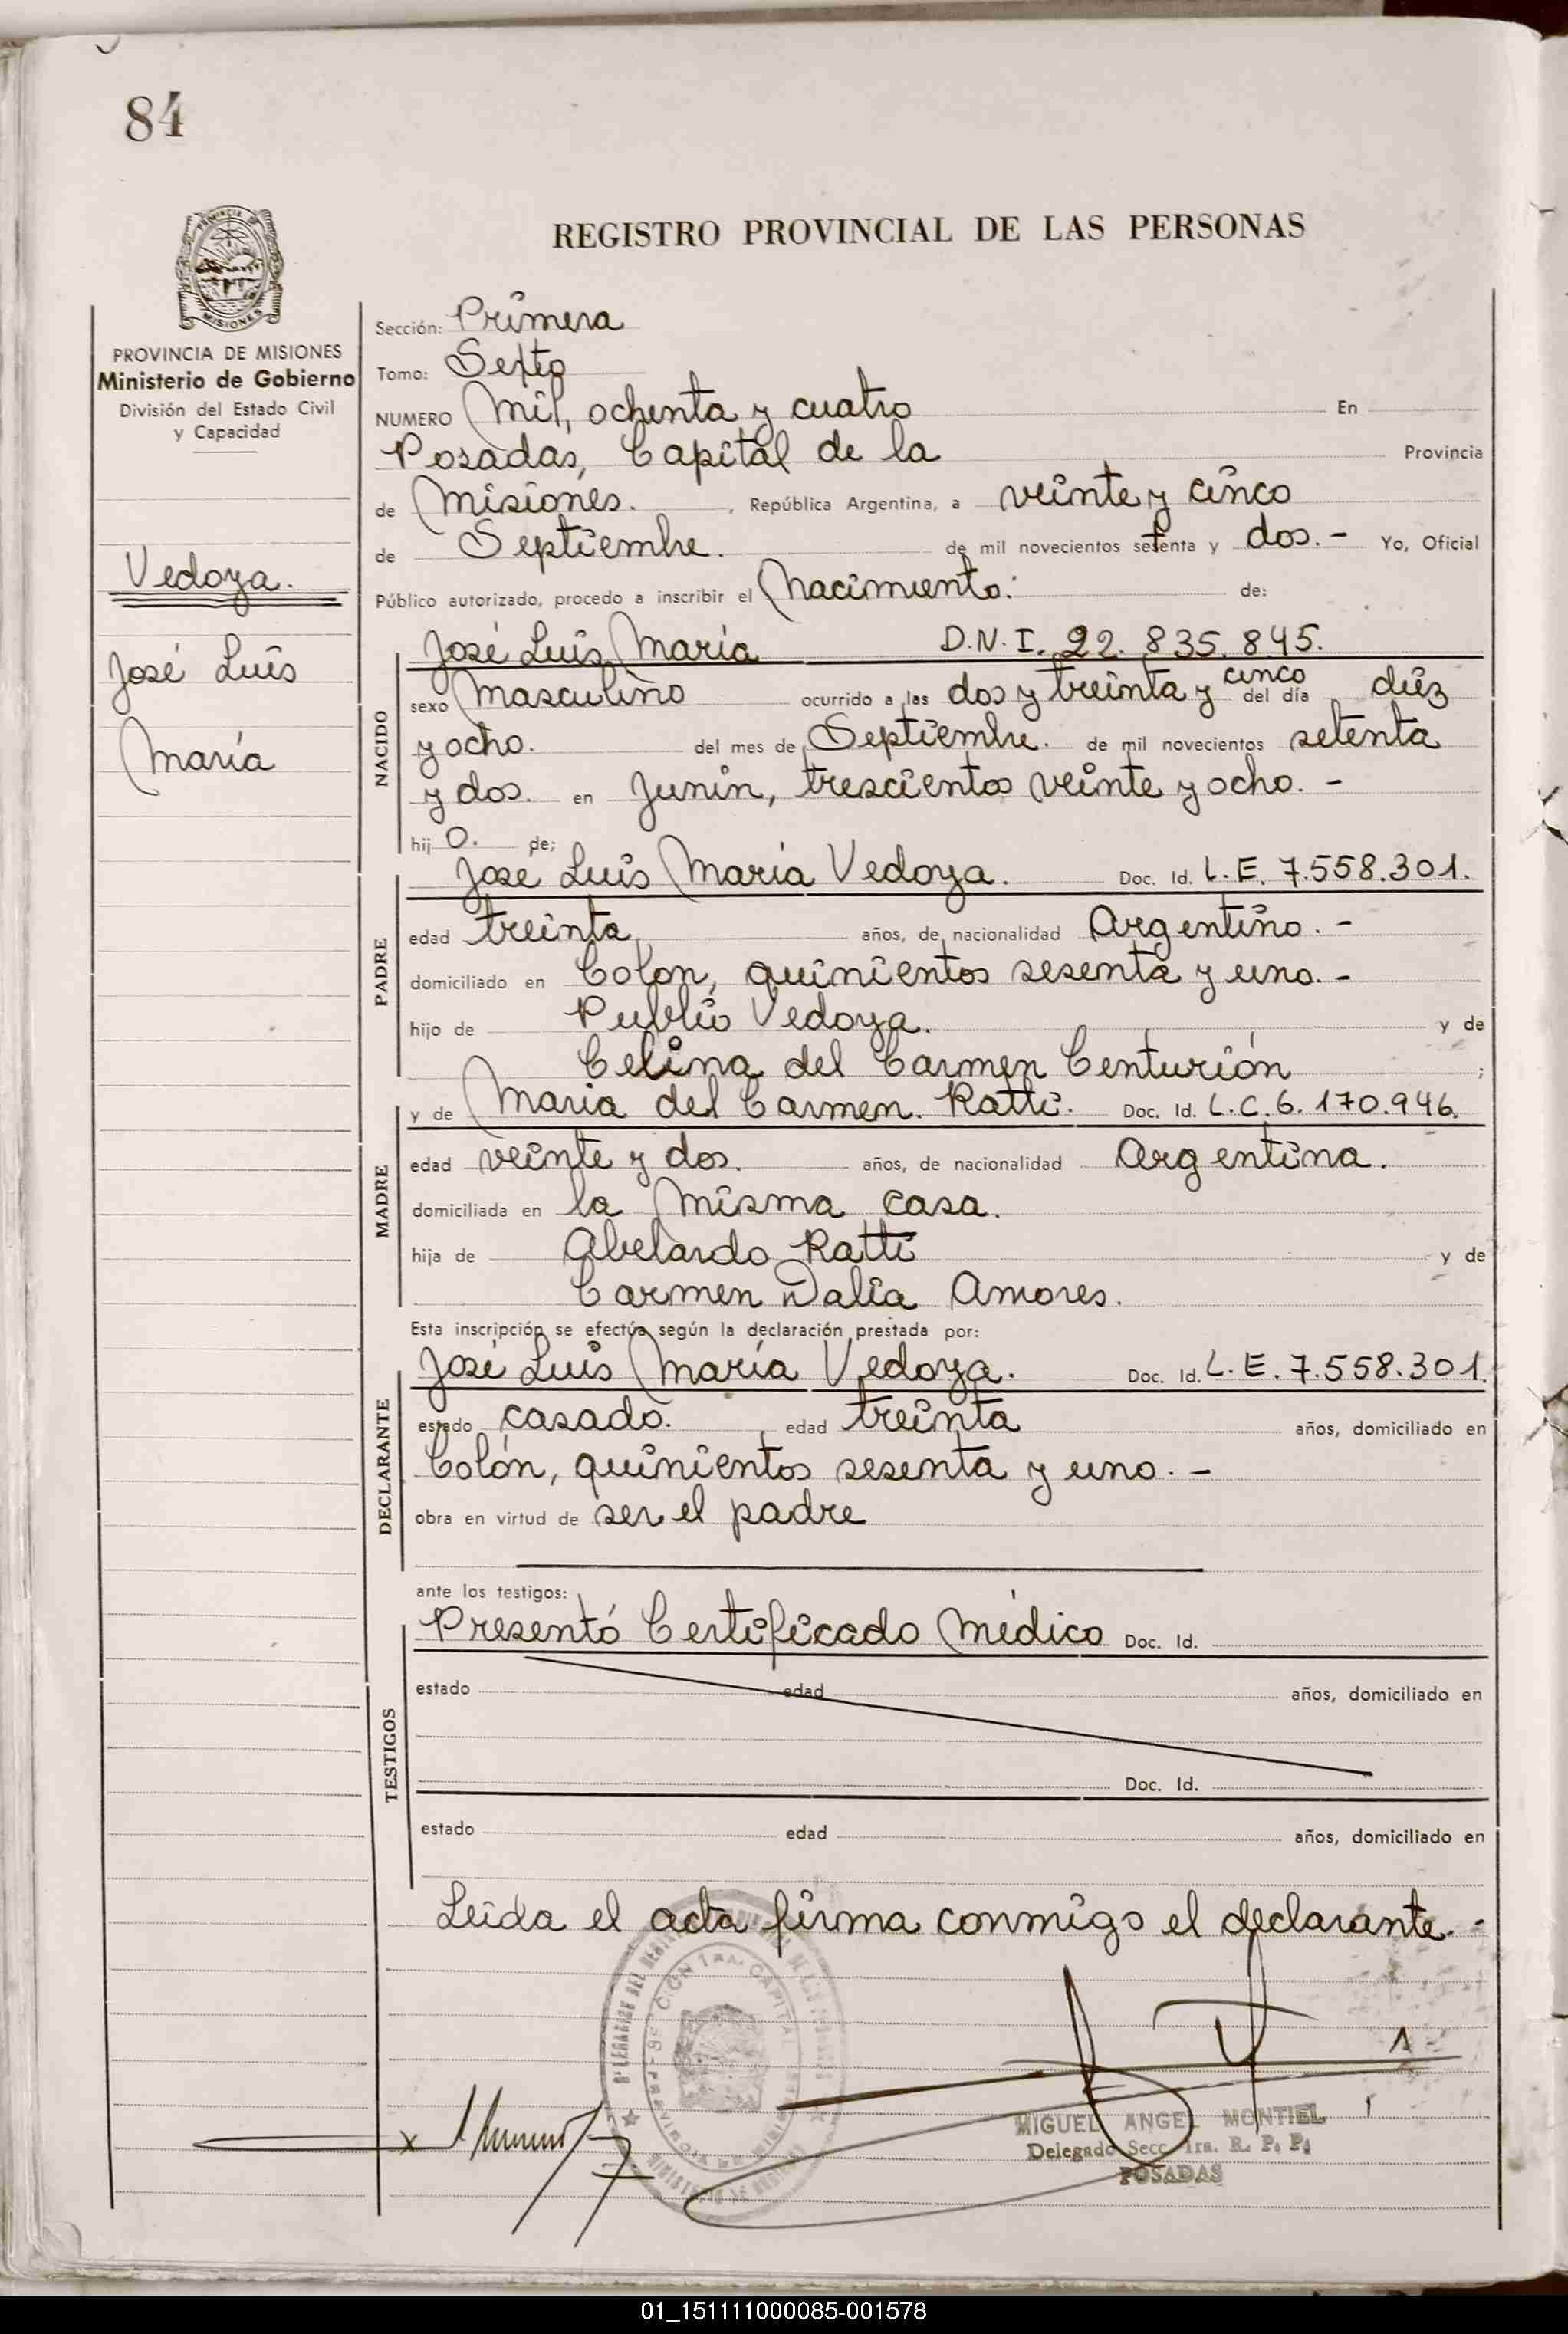 84
PROVINCIA DE
MISIONES
PROVINCIA DE MISIONES
Ministerio de Gobierno
División del Estado Civil
y Capacidad
Vedoya.
José Luis
María
REGISTRO PROVINCIAL DE LAS PERSONAS
Sección: Primera
Tomo: Sexto
NUMERO Mil, ochenta y cuatro En
Posadas, Capital de la Provincia
de Misiones. , República Argentina, a veinte y cinco
de Septiembre. de mil novecientos setenta y dos.- Yo, Oficial
Público autorizado, procedo a inscribir el Nacimiento: de:
NACIDO
José Luis María D.N.I. 22.835.845.
sexo Masculino ocurrido a las dos y treinta y cinco del día diez
y ocho. del mes de Septiembre. de mil novecientos setenta
y dos. en Junin, trescientos veinte y ocho.-
hij o. de;
PADRE
José Luis María Vedoya. Doc. Id. L.E. 7.558.301.
edad treinta años, de nacionalidad Argentino.-
domiciliado en Colon, quinientos sesenta y uno.-
hijo de Publio Vedoya. y de
Celina del Carmen Centurión ;
MADRE
y de Maria del Carmen. Ratti. Doc. Id. L.C. 6.170.946.
edad veinte y dos. años, de nacionalidad Argentina.
domiciliada en la misma casa.
hija de Abelardo Ratti y de
Carmen Dalia Amores.
Esta inscripción se efectúa según la declaración prestada por:
DECLARANTE
José Luis María Vedoya. Doc. Id. L.E. 7.558.301.
estado casado. edad treinta años, domiciliado en
Colón, quinientos sesenta y uno.-
obra en virtud de ser el padre
ante los testigos:
TESTIGOS
Presentó Certificado Médico Doc. Id.
estado edad años, domiciliado en
Doc. Id.
estado edad años, domiciliado en
Leida el acta firma conmigo el declarante.-
MIGUEL ANGEL MONTIEL
Delegado Secc. 1ra. R. P. P.
POSADAS
01_151111000085-001578